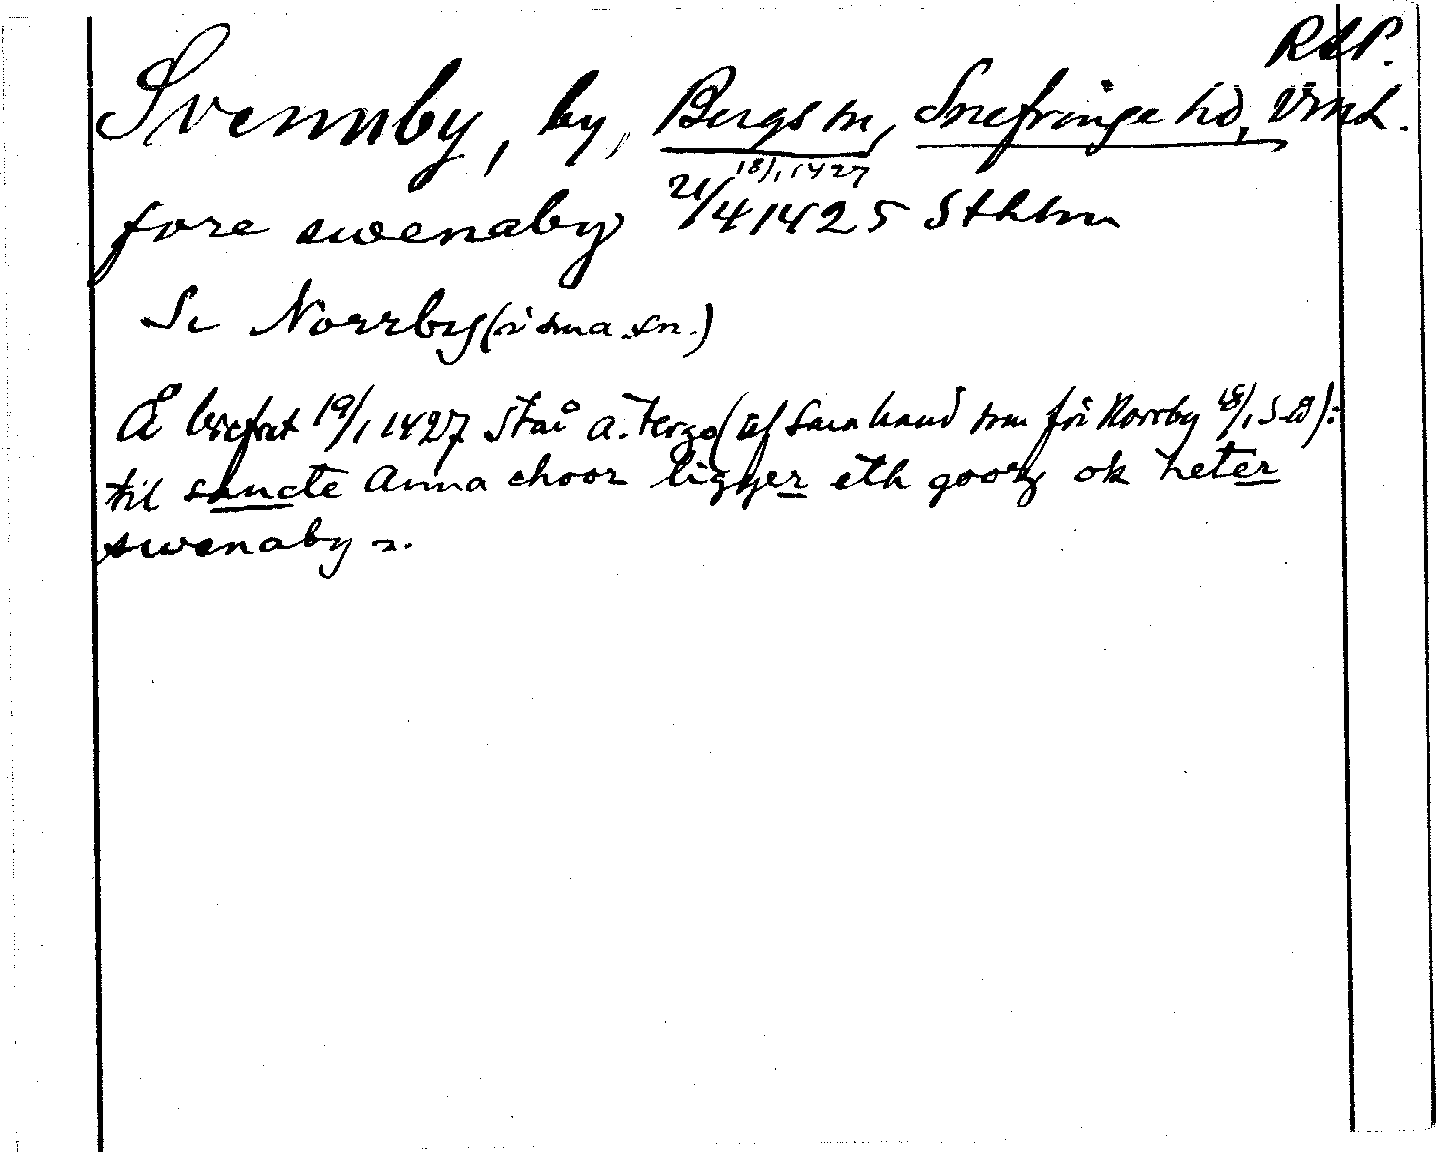 RAP.
Svennby, by, Bergs sn, Snefringe hd, Vml.
18/1 1427
fore swenaby 21/4 1425 Sthlm
Se Norrby (i sma sn.)
Å brefvet 19/1 1427 står a tergo (af samma hand som för Norrby 18/1 s.å):
til sancte Anna choor ligger eth goorz ok heter
swenaby